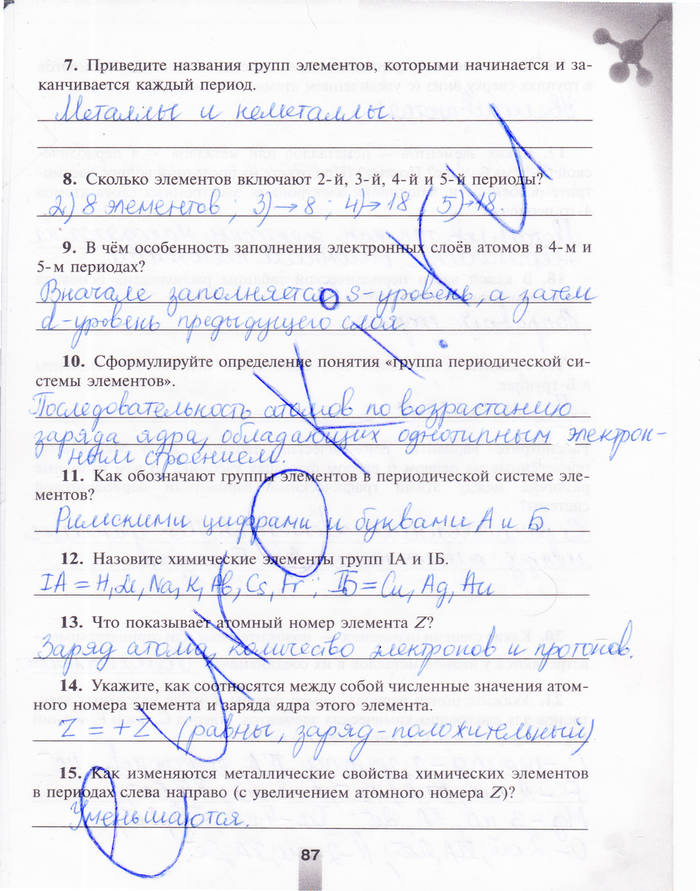 7. Приведите названия групп элементов, которыми начинается и за-
канчивается каждый период.
Металлы и неметаллы.
8. Сколько элементов включают 2-й, 3-й, 4-й и 5-й периоды?
2) 8 элементов; 3)→8; 4)→18 5)→18.
9. В чём особенность заполнения электронных слоёв атомов в 4-м и
5-м периодах?
Вначале заполняется s-уровень, а затем
d-уровень предыдущего слоя
10. Сформулируйте определение понятия «группа периодической си-
стемы элементов».
Последовательность атомов по возрастанию
заряда ядра, обладающих однотипным электрон-
ным строением.
11. Как обозначают группы элементов в периодической системе эле-
ментов?
Римскими цифрами и буквами А и Б.
12. Назовите химические элементы групп IА и IБ.
IA = H, Li, Na, K, Rb, Cs, Fr; IБ = Cu, Ag, Au
13. Что показывает атомный номер элемента Z?
Заряд атома, количество электронов и протонов.
14. Укажите, как соотносятся между собой численные значения атом-
ного номера элемента и заряда ядра этого элемента.
Z = +Z (равны, заряд-положительный)
15. Как изменяются металлические свойства химических элементов
в периодах слева направо (с увеличением атомного номера Z)?
Уменьшаются.
87